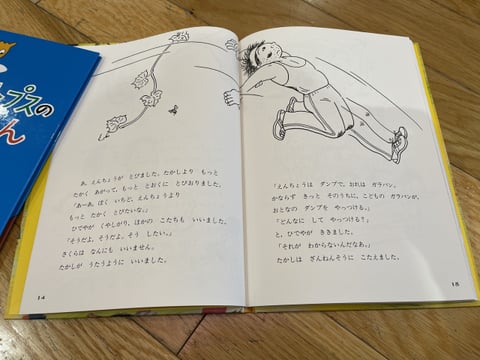 プスの
ん
あ、えんちょうが とびました。たかしより もっと
たかく あがって、もっと とおくに とびおりました。
「あーあ、ぼく いちど、えんちょうより
もっと たかく とびたいな。」
ひでやが くやしがり、ほかの こたちも いいました。
「そうだよ、そうだよ。そう したい。」
さくらは なんにも いいません。
たかしが うたうように いいました。
14
「えんちょうは ダンプで、おれは ガラパン。
かならず きっと そのうちに、こどもの ガラパンが、
おとなの ダンプを やっつける。」
「どんなに して やっつける?」
と、ひでやが ききました。
「それが わからないんだなあ。」
たかしは ざんねんそうに こたえました。
15